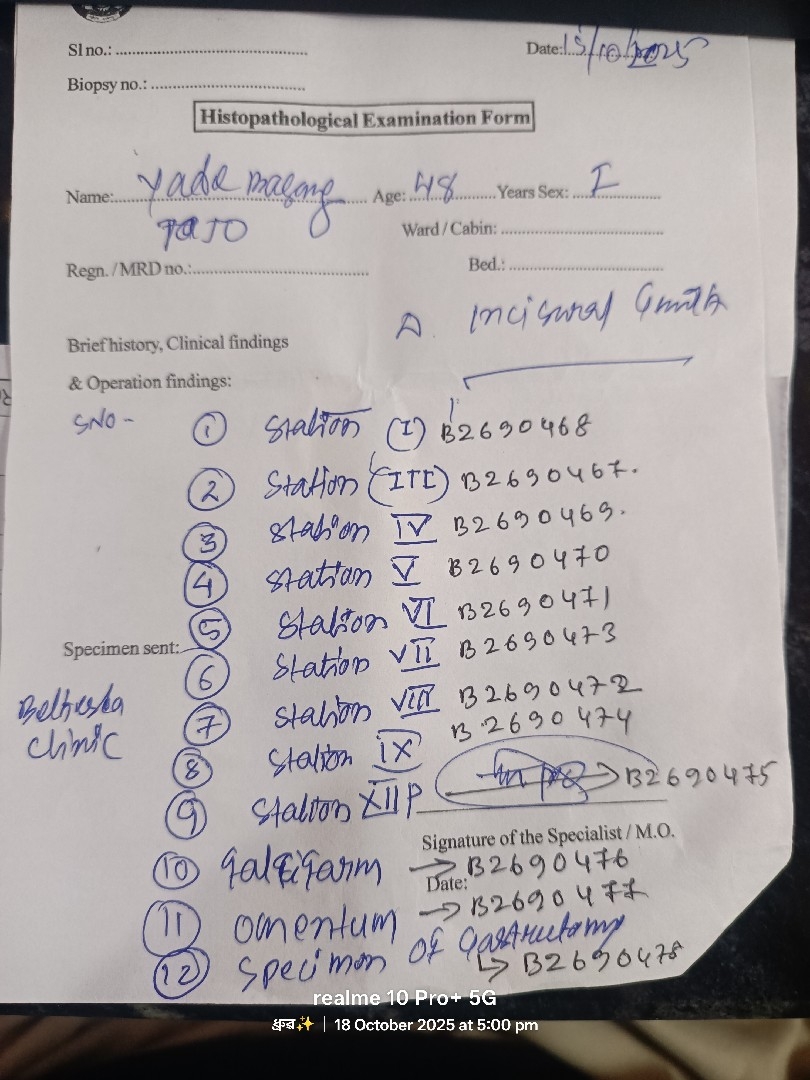 Sl no.: ..........
Date: 15/10/2025
Biopsy no.: ..........
Histopathological Examination Form
Name: Yade Age: 48 Years Sex: F
TaJO
Ward / Cabin: ..........
Regn. / MRD no.: ..........
Bed.: ..........
Δ. Incisural
Brief history, Clinical findings
& Operation findings:
SNO -
① Station (I) B2690468
② Station (III) B2690467.
③ Station IV B2690469.
④ Station V B2690470
⑤ Station VI B2690471
Specimen sent:
⑥ Station VII B2690473
Bethesda
Clinic
⑦ Station VIII B2690472
⑧ Station IX B2690474
⑨ Station XII P → B2690475
Signature of the Specialist / M.O.
⑩ → B2690476
Date:
⑪ omentum → B2690477
⑫ Specimen OF Gastrectomy
↳ B2690478
realme 10 Pro+ 5G
ধ্রুব✨ | 18 October 2025 at 5:00 pm